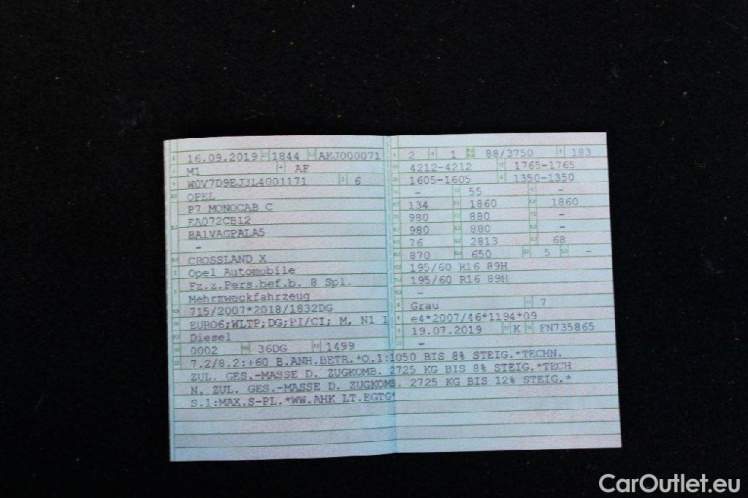 16.09.2019 1844 AHJ000071
M1 AF
W0V7D9EJ3L4001171 6
OPEL
P7 MONOCAB C
EA072CB12
BA1VAGPALA5
-
CROSSLAND X
Opel Automobile
Fz.z.Pers.bef.b. 8 Spl.
Mehrzweckfahrzeug
715/2007*2018/1832DG
EURO6;WLTP;DG;PI/CI; M, N1 I
Diesel
0002 36DG 1499
2 1 88/3750 183
4212-4212 1765-1765
1605-1605 1350-1350
- 55 - -
134 1860 1860
980 880 -
980 880 -
76 2813 68
870 650 5 -
195/60 R16 89H
195/60 R16 89H
-
Grau 7
e4*2007/46*1194*09
19.07.2019 K FN735865
-
7.2/8.2:+60 B.ANH.BETR.*O.1:1050 BIS 8% STEIG.*TECHN.
ZUL. GES.-MASSE D. ZUGKOMB. 2725 KG BIS 8% STEIG.*TECH
N. ZUL. GES.-MASSE D. ZUGKOMB. 2725 KG BIS 12% STEIG.*
S.1:MAX.S-PL.*WW.AHK LT.EGTG*
CarOutlet.eu